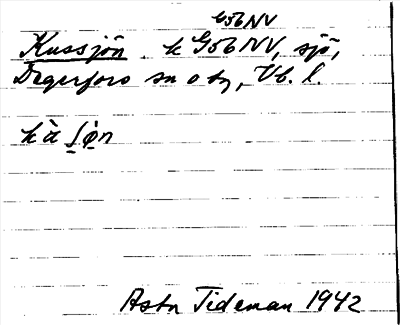 G56NV
Kussjön k G56NV, sjö,
Degerfors sn o tg, Vb. l.
kὰ ʃὼn
Astr Tideman 1942